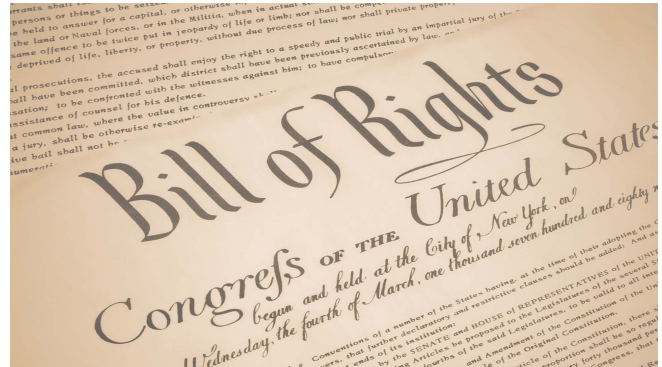 rrants shall
persons or things to be seize
be held to answer for a capital, or otherwise
the land or Naval forces, or in the Militia, when in actual s
same offence to be twice put in jeopardy of life or limb; nor shall be compe
deprived of life, liberty, or property, without due process of law; nor shall private proper
l prosecutions, the accused shall enjoy the right to a speedy and public trial by an impartial jury of the
all have been committed, which district shall have been previously ascertained by law,
sation; to be confronted with the witnesses against him; to have compulsor
ssistance of counsel for his defence.
t common law, where the value in controversy
a jury, shall be otherwise re-exam
ive bail shall not be
numerat
Bill of Rights
Congreſs OF THE United States
begun and held at the City of New York, on
Wednesday, the fourth of March, one thousand seven hundred and eighty n
Conventions of a number of the States having, at the time of their adopting the C
ers, that further declaratory and restrictive clauses should be added: And as
ends of its institution:
by the SENATE and HOUSE of REPRESENTATIVES of the UNIT
ng Articles be proposed to the Legislatures of the several S
fourths of the said Legislatures, to be valid to all inte
and Amendment of the Constitution of the Un
le of the Original Constitution.
rticle of the Constitution, there s
proportion shall be so regul
ery forty thousand per
Congress, that